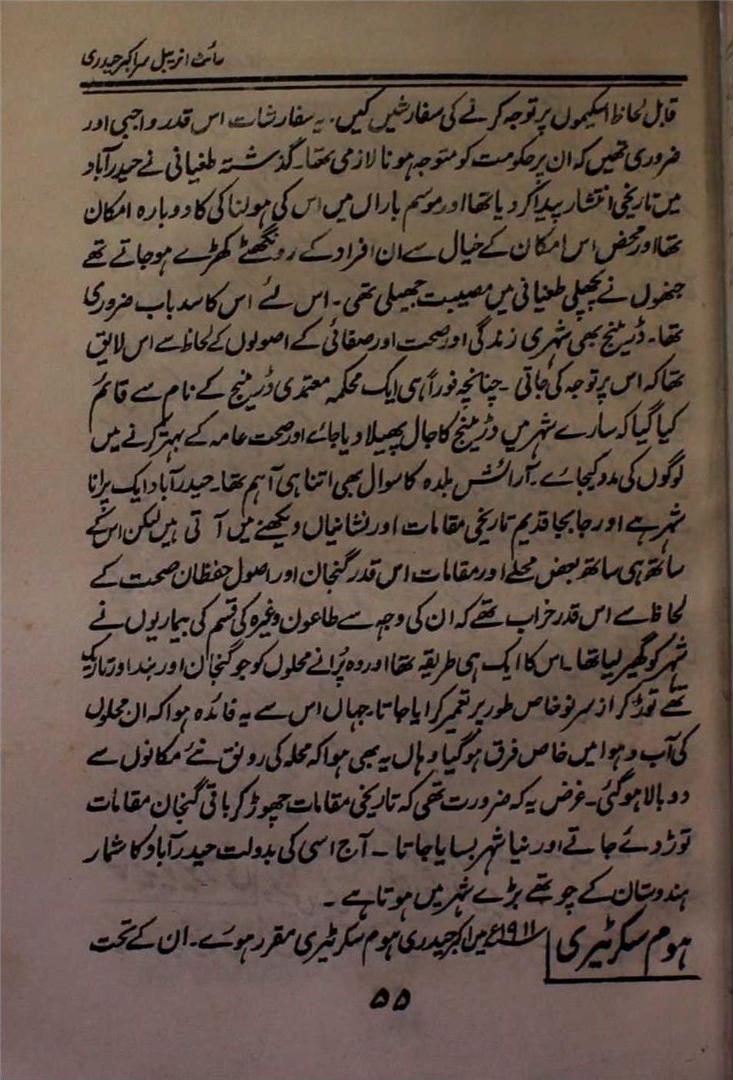 رائٹ انریبل سر اکبر حیدری
قابل لحاظ اسکیموں پر توجہ کرنے کی سفارشیں کیں۔ یہ سفارشات اس قدر واجبی اور
ضروری تھیں کہ ان پر حکومت کو متوجہ ہونا لازمی تھا۔ گذشتہ طغیانی نے حیدرآباد
میں تاریخی انتشار پیدا کر دیا تھا اور موسم باراں میں اس کی ہولناکی کا دوبارہ امکان
تھا اور محض اس امکان کے خیال سے ان افراد کے رونگھٹے کھڑے ہو جاتے تھے
جنھوں نے پچھلی طغیانی میں مصیبت جھیلی تھی۔ اس لئے اس کا سدباب ضروری
تھا۔ ڈرینیج بھی شہری زندگی اور صحت اور صفائی کے اصولوں کے لحاظ سے اس لایق
تھا کہ اس پر توجہ کی جاتی۔ چنانچہ فوراً ہی ایک محکمہ معتمدی ڈرینیج کے نام سے قائم
کیا گیا کہ سارے شہر میں ڈرینیج کا جال پھیلا دیا جائے اور صحت عامہ کے بہتر کرنے میں
لوگوں کی مدد کیجائے۔ آرائش بلدہ کا سوال بھی اتنا ہی اہم تھا۔ حیدرآباد ایک پرانا
شہر ہے اور جابجا قدیم تاریخی مقامات اور نشانیاں دیکھنے میں آتی ہیں لیکن اس کے
ساتھ ہی ساتھ بعض محلے اور مقامات اس قدر گنجان اور اصول حفظان صحت کے
لحاظ سے اس قدر خراب تھے کہ ان کی وجہ سے طاعون وغیرہ کی قسم کی بیماریوں نے
شہر کو گھیر لیا تھا۔ اس کا ایک ہی طریقہ تھا اور وہ پُرانے محلوں کو جو گنجان اور بند اور تاریک
تھے توڑ کر از سر نو خاص طور پر تعمیر کرایا جاتا۔ جہاں اس سے یہ فائدہ ہوا کہ ان محلوں
کی آب و ہوا میں خاص فرق ہو گیا وہاں یہ بھی ہوا کہ محلہ کی رونق نئے مکانوں سے
دوبالا ہو گئی۔ غرض یہ کہ ضرورت تھی کہ تاریخی مقامات چھوڑ کر باقی گنجان مقامات
توڑ دئے جاتے اور نیا شہر بسایا جاتا۔ آج اسی کی بدولت حیدرآباد کا شمار
ہندوستان کے چوتھے بڑے شہر میں ہوتا ہے۔
ہوم سکرٹیری ۱۹۱۱ء میں اکبر حیدری ہوم سکرٹیری مقرر ہوے۔ ان کے تحت
۵۵